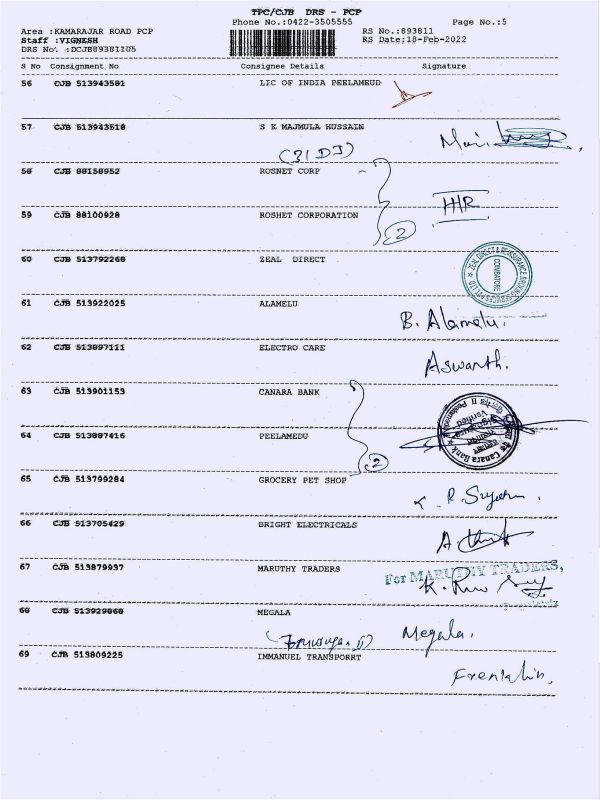 TPC/CJB DRS - PCP
Phone No.:0422-3505555 Page No.:5
Area :KAMARAJAR ROAD PCP RS No.:893811
Staff :VIGNESH RS Date:18-Feb-2022
DRS No. :DCJB89381105
S No Consignment No Consignee Details Signature
56 CJB 513943581 LIC OF INDIA PEELAMEUD
57 CJB 513943518 S K MAJMULA HUSSAIN
58 CJB 88158952 ROSNET CORP
59 CJB 88100928 ROSHET CORPORATION
2
60 CJB 513792268 ZEAL DIRECT
ZEAL DIRECT & REINSURANCE BROKING SERVICES PVT LTD
COIMBATORE
61 CJB 513922025 ALAMELU
B. Alamelu.
62 CJB 513897111 ELECTRO CARE
Aswanth.
63 CJB 513901153 CANARA BANK
64 CJB 513887416 PEELAMEDU
2
65 CJB 513799284 GROCERY PET SHOP
66 CJB 513705429 BRIGHT ELECTRICALS
67 CJB 513879937 MARUTHY TRADERS
For MARUTHY TRADERS,
68 CJB 513929868 MEGALA
Megala.
69 CJB 513809225 IMMANUEL TRANSPORRT